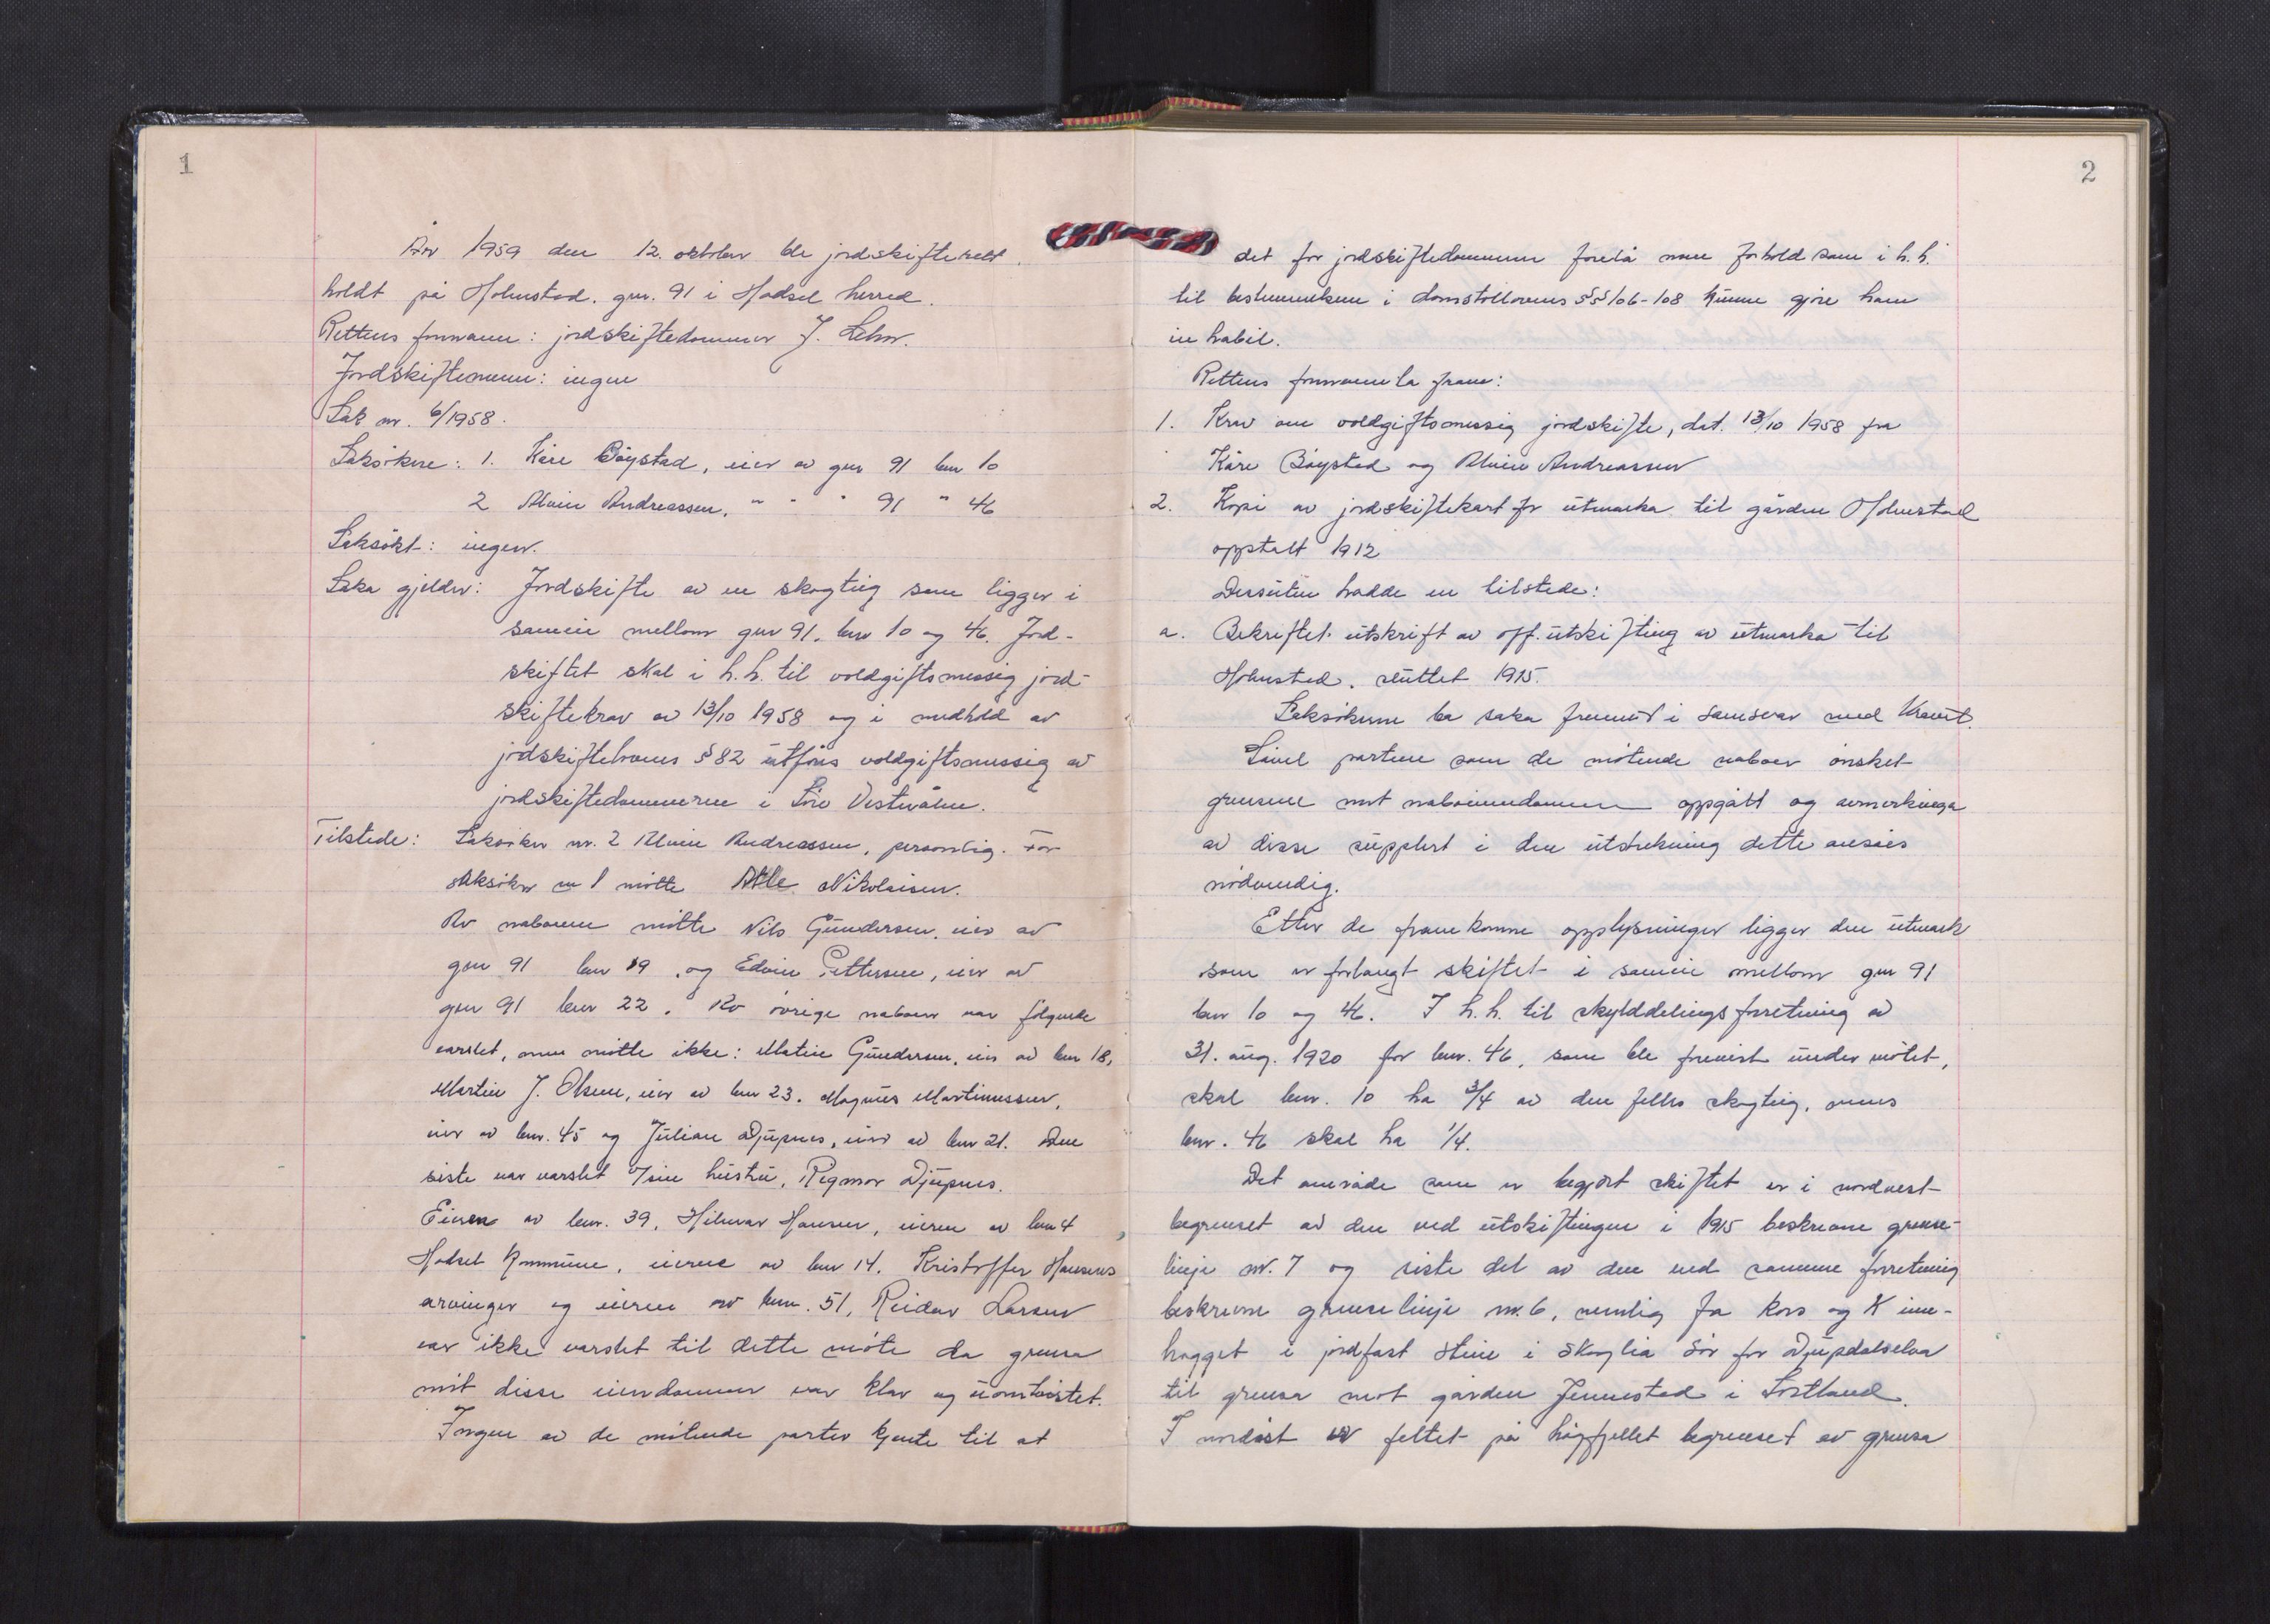 1
År 1959 den 12. oktober ble jordskifterett
holdt på Holmstad. gnr. 91 i Hadsel herred.
Rettens formann: jordskiftedommer J.
Jordskiftemenn: ingen
Sak nr. 6/1958.
Saksökere: 1. Kåre Böystad, eier av gnr 91 bnr 10
2 Alvin Andreassen, " " " 91 " 46
Saksökt: ingen.
Saka gjelder: Jordskifte av en skogteig som ligger i
sameie mellom gnr 91, bnr 10 og 46. Jord-
skiftet skal i h.h. til voldgiftsmessig jord-
skiftekrav av 13/10 1958 og i medhold av
jordskiftelovens § 82 utföres voldgiftsmessig av
jordskiftedommeren i Söre Vesterålen.
Tilstede: Saksöker nr. 2 Alvin Andreassen, personlig. For
saksöker nr 1 mötte Atle Nikolaisen.
Av naboene mötte Nils Gundersen, eier av
gnr 91 bnr 19, og Edvin Pettersen, eier av
gnr 91 bnr 22. Av övrige naboer var fölgende
varslet, men mötte ikke: Matin Gundersen, eier av bnr 18,
Martin J. Olsen, eier av bnr 23. Magnus Martinussen,
eier av bnr. 45 og Julian Djupnes, eier av bnr 21. Den
siste var varslet v/sin hustru, Rigmor Djupnes.
Eieren av bnr. 39, Hilmar Hansen, eieren av bnr 4
Hadsel kommune, eierne av bnr 14. Kristoffer Hansens
arvinger og eieren av bnr. 51, Reidar Larsen
var ikke varslet til dette möte da grensa
mot disse eiendommer var klar og uomtvistet.
Ingen av de mötende parter kjente til at
2
det for jordskiftedommeren forelå noen forhold som i h.h.
til bestemmelsene i domstollovens §§ 106-108 kunne gjöre ham
inhabil.
Rettens formann la fram:
1. Krav om voldgiftsmessig jordskifte, dat. 13/10 1958 fra
Kåre Böystad og Alvin Andreassen
2. Kopi av jordskiftekart for utmarka til gården Holmstad
opptatt 1912
Dessuten hadde en tilstede:
a. Bekreftet utskrift av off. utskifting av utmarka til
Holmstad, sluttet 1915.
Saksökerne ba saka fremmet i samsvar med kravet.
Såvel partene som de mötende naboer önsket
grensene mot naboeiendommene oppgått og avmerkinga
av disse supplert i den utstrekning dette ansees
nödvendig.
Etter de framkomne opplysninger ligger den utmark
som er forlangt skiftet i sameie mellom gnr 91
bnr 10 og 46. I h.h. til skylddelingsforretning av
31. aug. 1920 for bnr. 46, som ble framvist under mötet,
skal bnr. 10 ha 3/4 av den felles skogteig, mens
bnr. 46 skal ha 1/4.
Det område som er begjært skiftet er i nordvest
begrenset av den ved utskiftingen i 1915 beskrevne grense-
linje nr. 7 og siste del av den ved samme forretning
beskrevne grenselinje nr. 6, nemlig fra kors og K inn-
hogget i jordfast stein i Skoglia sör for Djupdalselva
til grensa mot gården Jennestad i Sortland.
I nordöst er feltet på högfjellet begrenset av grensa